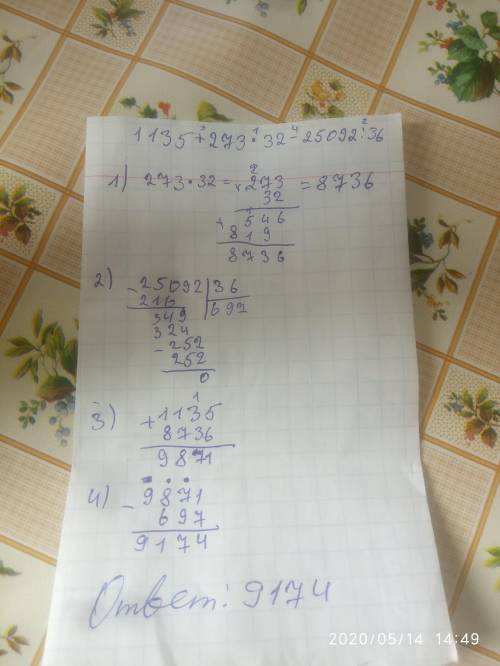 1135+³273·¹32-⁴25092:²36
1) 273·32= ×273 =8736
32
+546
819
8736
2) -25092|36
216 |697
349
324
-252
252
0
3) +1135
8736
9871
4) -9871
697
9174
Ответ: 9174
2020/05/14 14:49